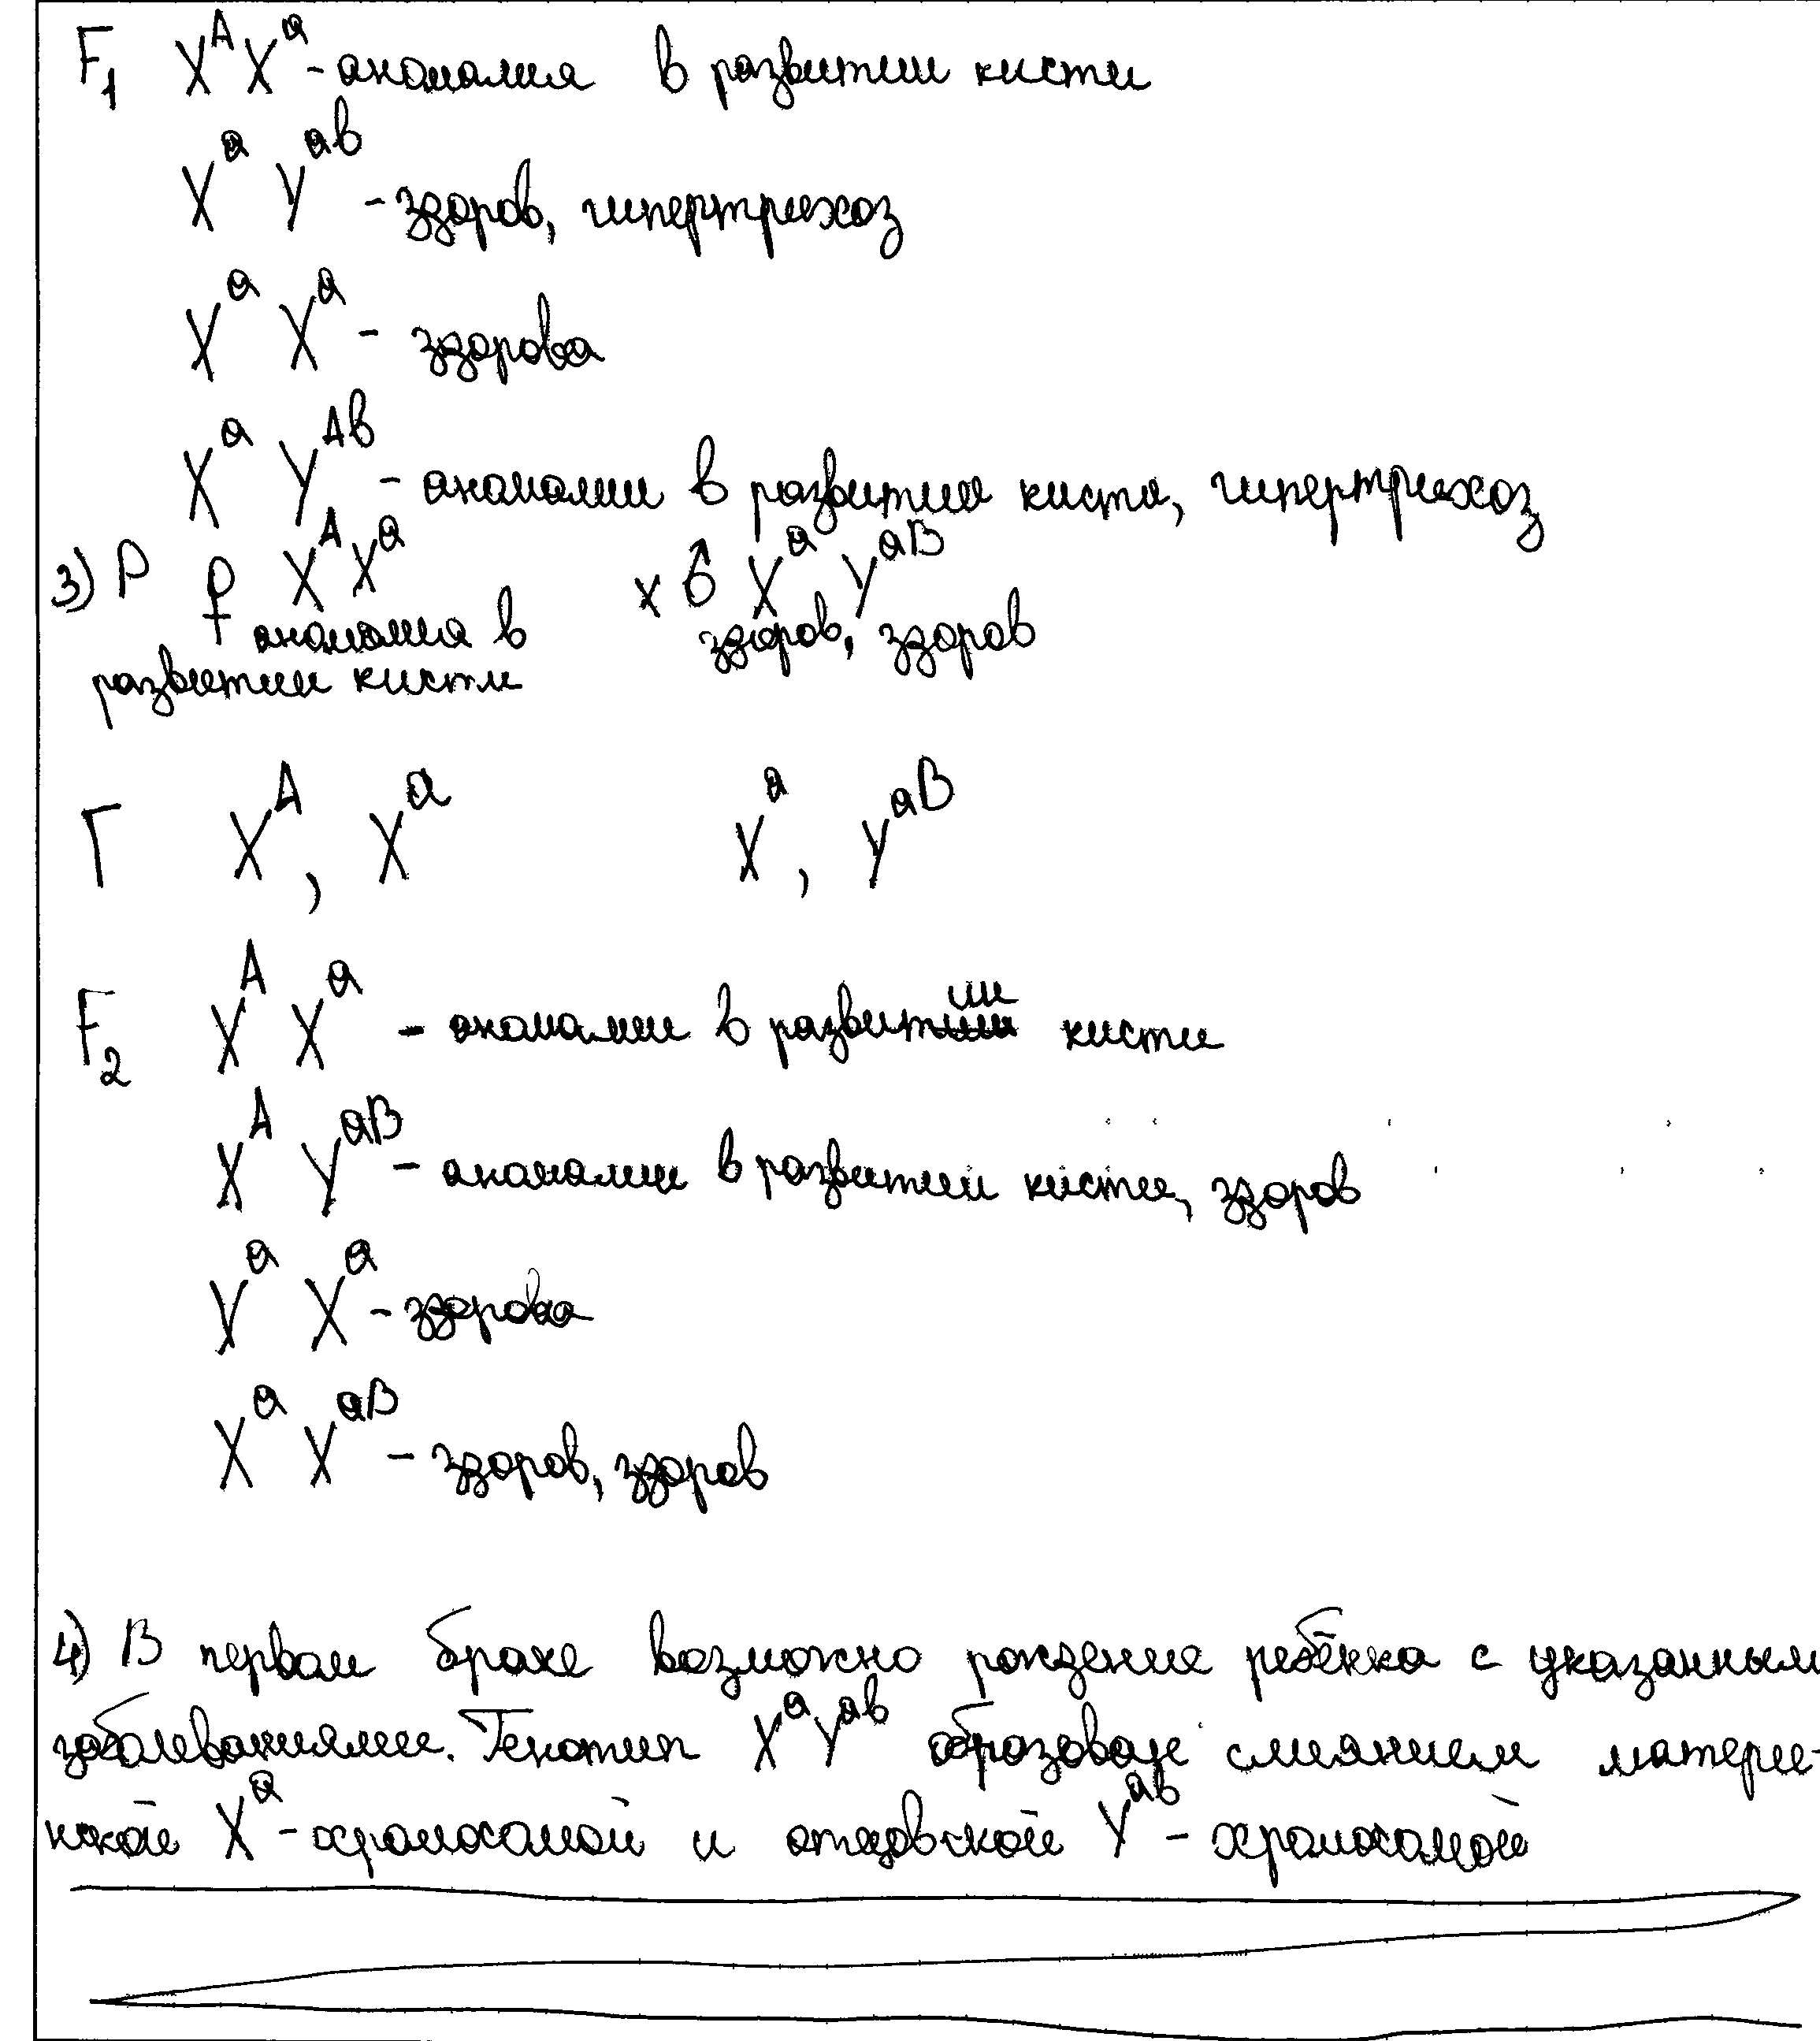 F₁ XᴬXᵃ - аномалия в развитии кисти
Xᵃ Yᵃᵇ - здоров, гипертрихоз
Xᵃ Xᵃ - здорова
Xᵃ Yᴬᵇ - аномалии в развитии кисти, гипертрихоз
3) P ♀ XᴬXᵃ х ♂ Xᵃ Yᵃᴮ
аномалия в здоров, здоров
развитии кисти
Г Xᴬ, Xᵃ Xᵃ, Yᵃᴮ
F₂ Xᴬ Xᵃ - аномалии в развитии кисти
Xᴬ Yᵃᴮ - аномалии в развитии кисти, здоров
Xᵃ Xᵃ - здорова
Xᵃ Xᵃᴮ - здоров, здоров
4) В первом браке возможно рождение ребёнка с указанными
заболеваниями. Генотип XᵃYᵃᵇ образован слиянием матери-
нской Xᵃ - хромосомой и отцовской Yᵃᵇ - хромосомой